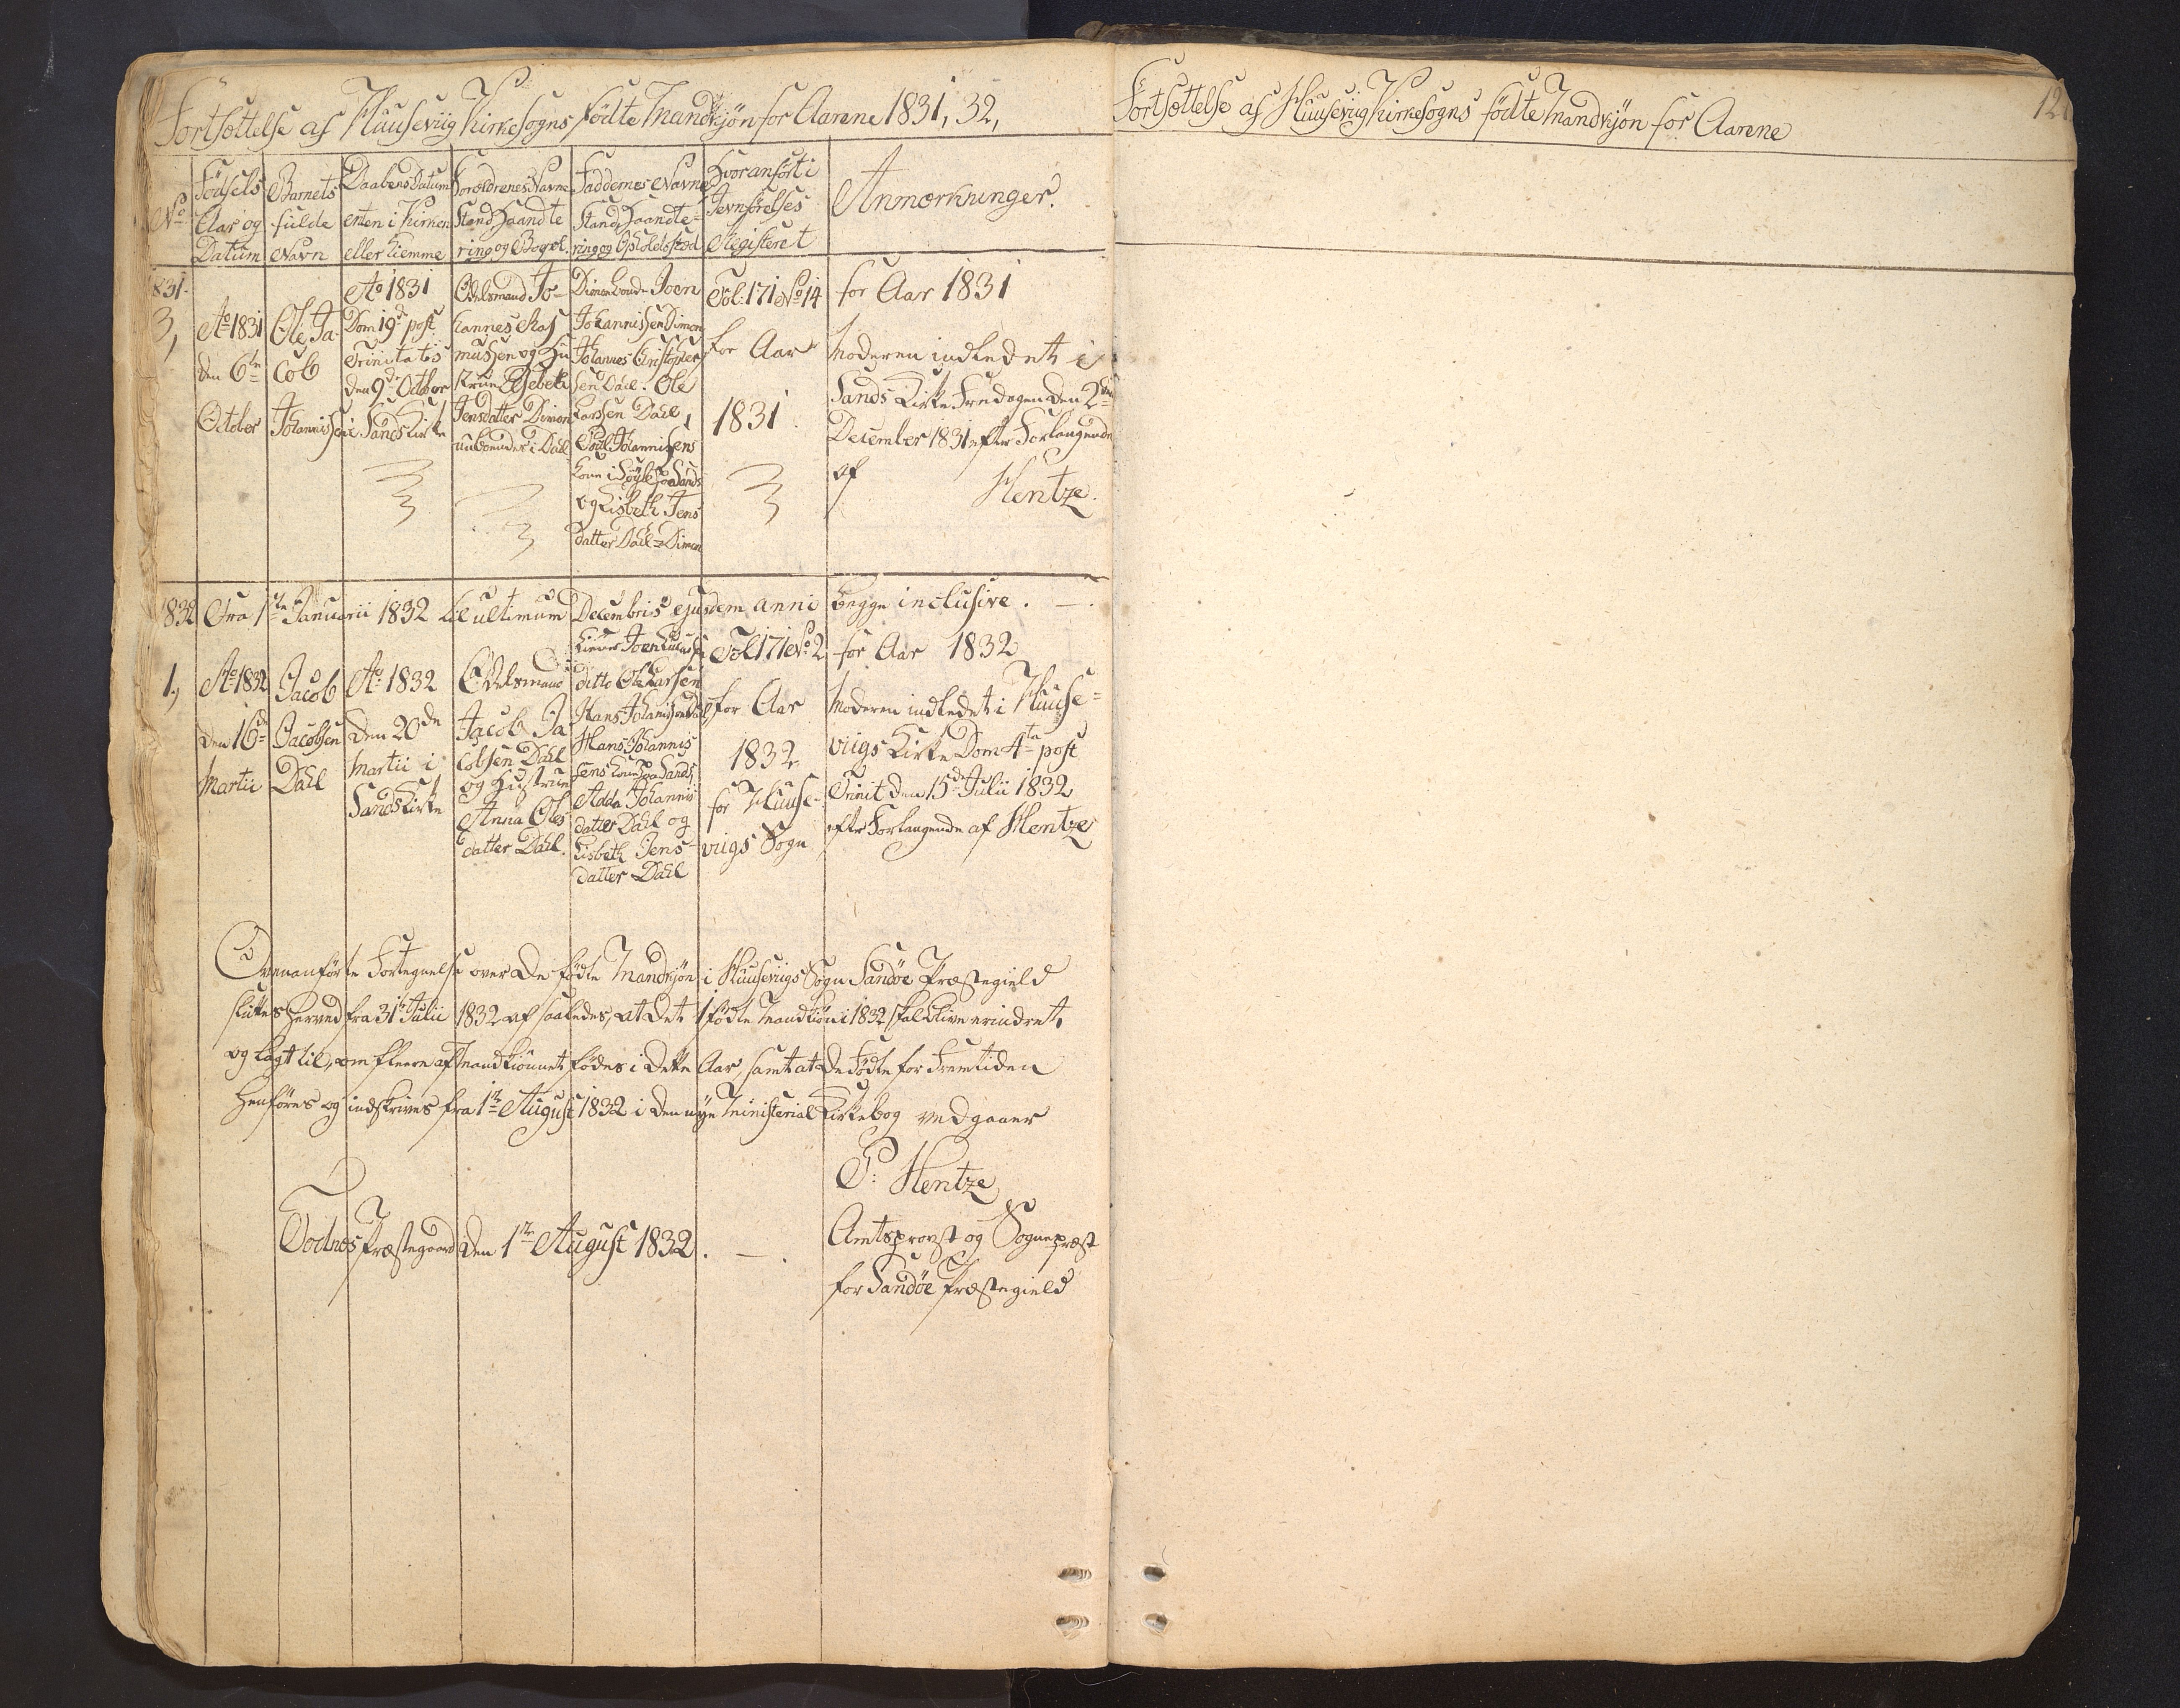 Fortsættelse af Huuseviig Kirkesogns fødte Mandkjøn for Aarene 1831, 32,
No
Fødsels
Aar og
Datum
Barnets
fulde
Navn
Daabens Datum
enten i Kirken
eller hiemme
Forældrenes Navne
Stand, Haandte
ring og Bopæl.
Faddernes Navne
Stand, Haandte-
ring og Opholdssted
Hvor anført i
Jevnførelses
Registeret
Anmærkninger.
1831.
3,
Ao 1831
den 6te
October
Ole Ja-
cob
Johannissen
Ao 1831
Dom 19de post
Trinitatis
den 9de October
i Sands Kirke
Odelsmand Jo-
hannes Ras
mussen og Hu
strue Elsebeth
Jensdatter Dimon
nu boende i Dahl
Dimon bonde Joen
Johannissen Dimon
Johannes Christopher
sen Dahl. Ole
Larssen Dahl
Poul Johannissens
kone i Søyle paa Sands
og Lisbeth Jens
datter Dahl Dimon
Fol: 171 No 14
for Aar
1831
for Aar 1831
Moderen indledet i
Sands Kirke Fredagen den 2den
December 1831 efter Forlangende
af Hentze.
1832 Fra 1te Januarii 1832 til ultimum Decembris ejusdem anni begge inclusive.
1,
Ao 1832
den 16de
Martii
Jacob
Jacobsen
Dahl
Ao 1832
den 20de
Martii i
Sands Kirke
Odelsmand
Jacob Ja
cobsen Dahl
og Hustrue
Anna Oles
datter Dahl.
ditto Ole Larsen
Hans Johannissen Dahl,
Hans Johannis
sens kone paa Sands
Adda Johannis
datter Dahl og
Lisbeth Jens-
datter Dahl
Fol 171 No 2
for Aar
1832
for Huuse-
viigs Sogn
for Aar 1832
Moderen indledet i Huuse-
viigs Kirke Dom 4ta post
Trinit den 15de Julii 1832
efter Forlangende af Hentze
Ovenanførte Fortegnelse over de fødte Mandkjøn i Huuseviigs Sogn Sandøe Præstegield
sluttes herved fra 31te Julii 1832 af saaledes, at det 1 fødte Mandkiøn i 1832 skal blive erindret,
og lagt til, om fleere af Mandkiønnet fødes i dette Aar, samt at de Fødte for Fremtiden
henføres og indskrives fra 1te August 1832 i den nye Ministerial Kirkebog vedgaaer
P. Hentze
Todnæs Præstegaard den 1te August 1832.
Amtsprovst og Sognepræst
for Sandøe Præstegield
Fortsættelse af Huuseviig Kirkesogns fødte Mandkjøn for Aarene